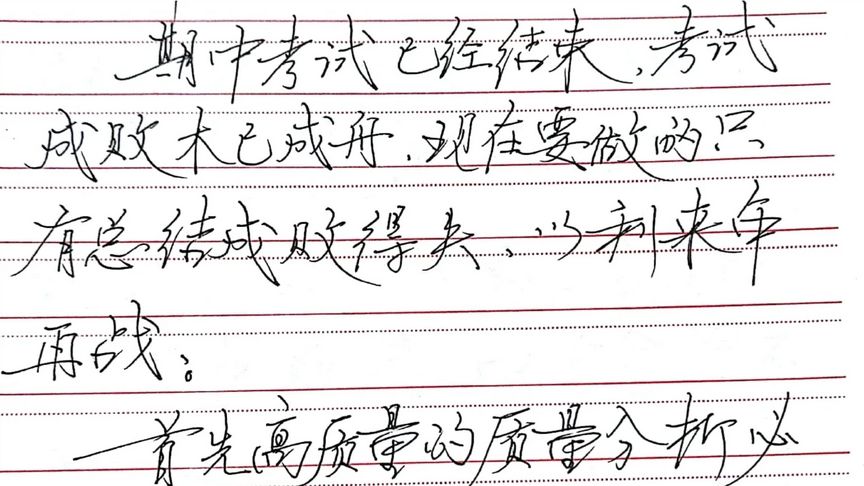 期中考试已经结束,考试
成败木已成舟,现在要做的只
有总结成败得失,以利来年
再战:
首先高质量的质量分析必